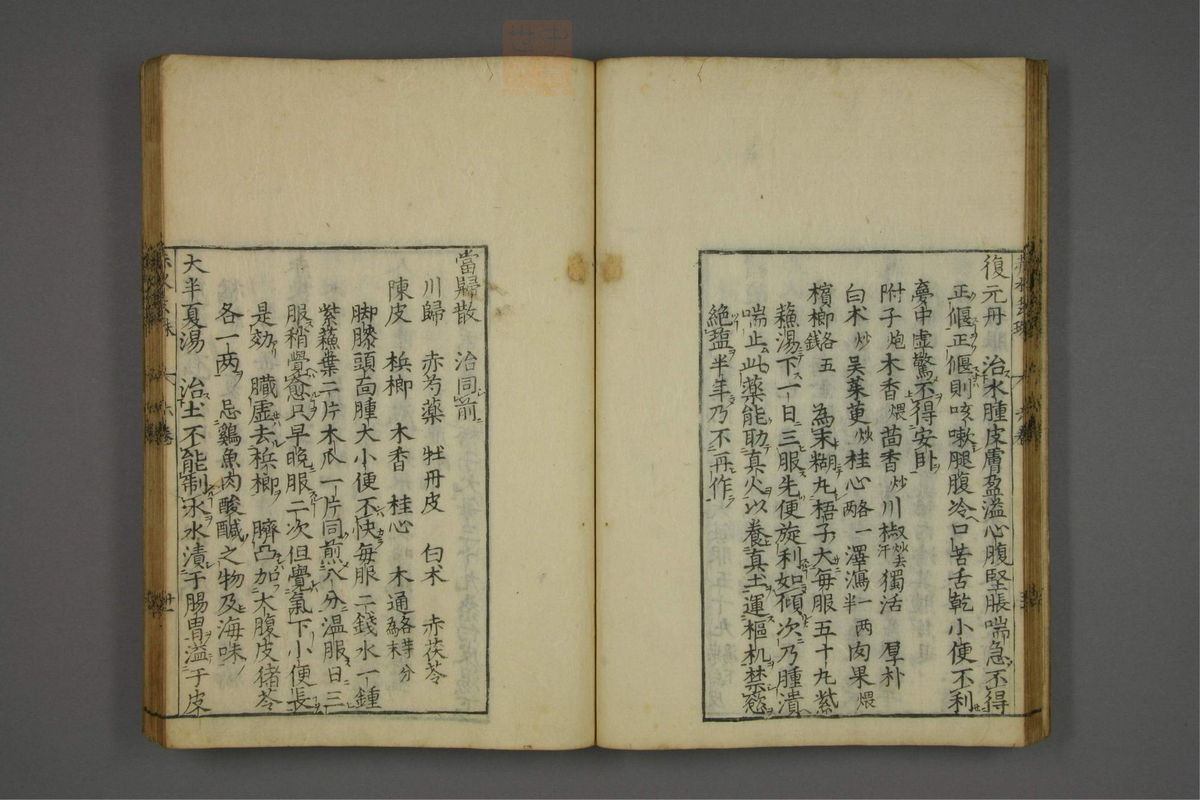 復元丹 治水腫皮膚盈溢心腹堅脹喘急不得
正偃正偃則咳嗽腿腹冷口苦舌乾小便不利
夢中虛驚不得安卧
附子炮木香煨茴香炒川椒炒去汗獨活 厚朴
白术炒 吴茱萸炒桂心各一两澤瀉一两半肉果煨
檳榔各五錢 為末糊丸梧子大每服五十丸紫
蘓湯下一日三服先便旋利如傾次乃腫潰
喘止此藥能助真火以養真土運樞机禁慾
絶塩半年乃不再作
當歸散 治同前
川歸 赤芍藥 牡丹皮 白术 赤茯苓
陳皮 梹榔 木香 桂心 木通各等分為末
脚膝頭面腫大小便不快每服二錢水一鍾
紫蘓葉二片木瓜一片同煎八分温服日三
服稍覺愈只早晚服二次但覺氣下小便長
是効 臟虛去梹榔 臍凸加大腹皮猪苓
各一两 忌鷄魚肉酸醎之物及海味
大半夏湯 治土不能制水水漬于腸胃溢于皮